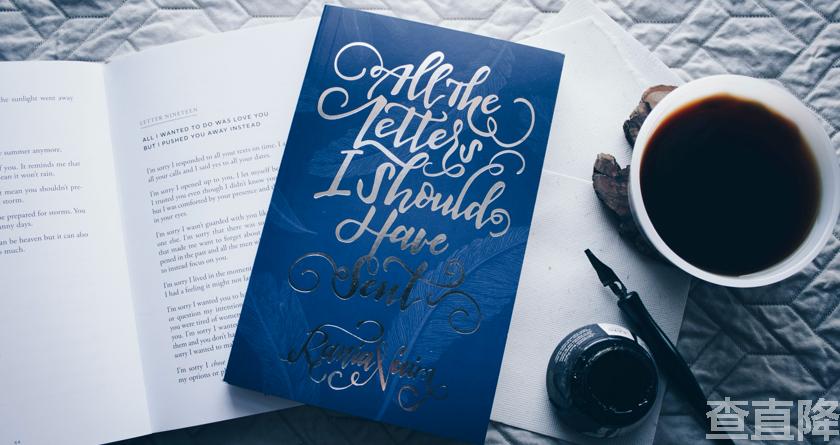 he sunlight went away
e summer anymore.
f you. It reminds me that
ean it won't rain.
t mean you shouldn't pre-
be prepared for storms. You
nny days.
an be heaven but it can also
o much.
64
LETTER NINETEEN
ALL I WANTED TO DO WAS LOVE YOU
BUT I PUSHED YOU AWAY INSTEAD
I'm sorry I responded to all your texts on time. I
all your calls and I said yes to all your dates.
I'm sorry I opened up to you, I let myself
I trusted you even though I didn't know
but I was comforted by your presence and
in your eyes.
I'm sorry I wasn't guarded with you
one else. I'm sorry that there was
that made me want to forget about
pened in the past and all the men
to instead focus on you.
I'm sorry I lived in the moment
I had a feeling it might not
I'm sorry I wanted you to
or question my intention
you were tired of women
them and you don't
sorry I wanted to
I'm sorry I
my options or
All the
Letters
I Should
Have
Sent
Rania Naim
查直隆